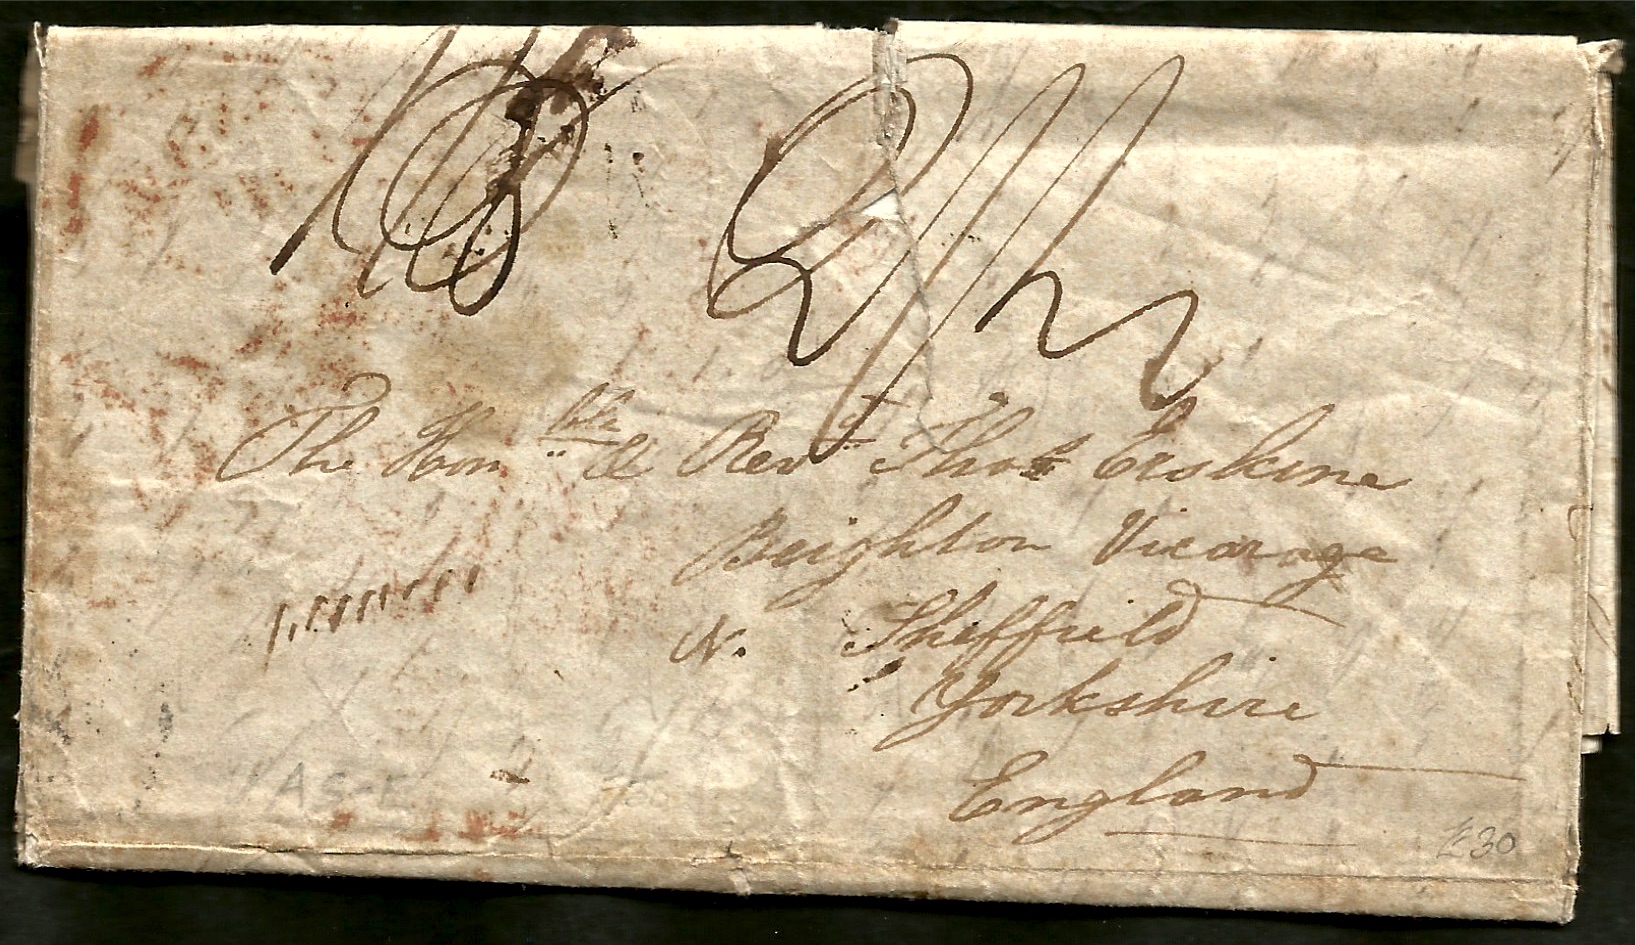 2/2
The Hon ble & Rev d Thos Erskine
Beighton Vicarage
N. Sheffield
Yorkshire
England
£30